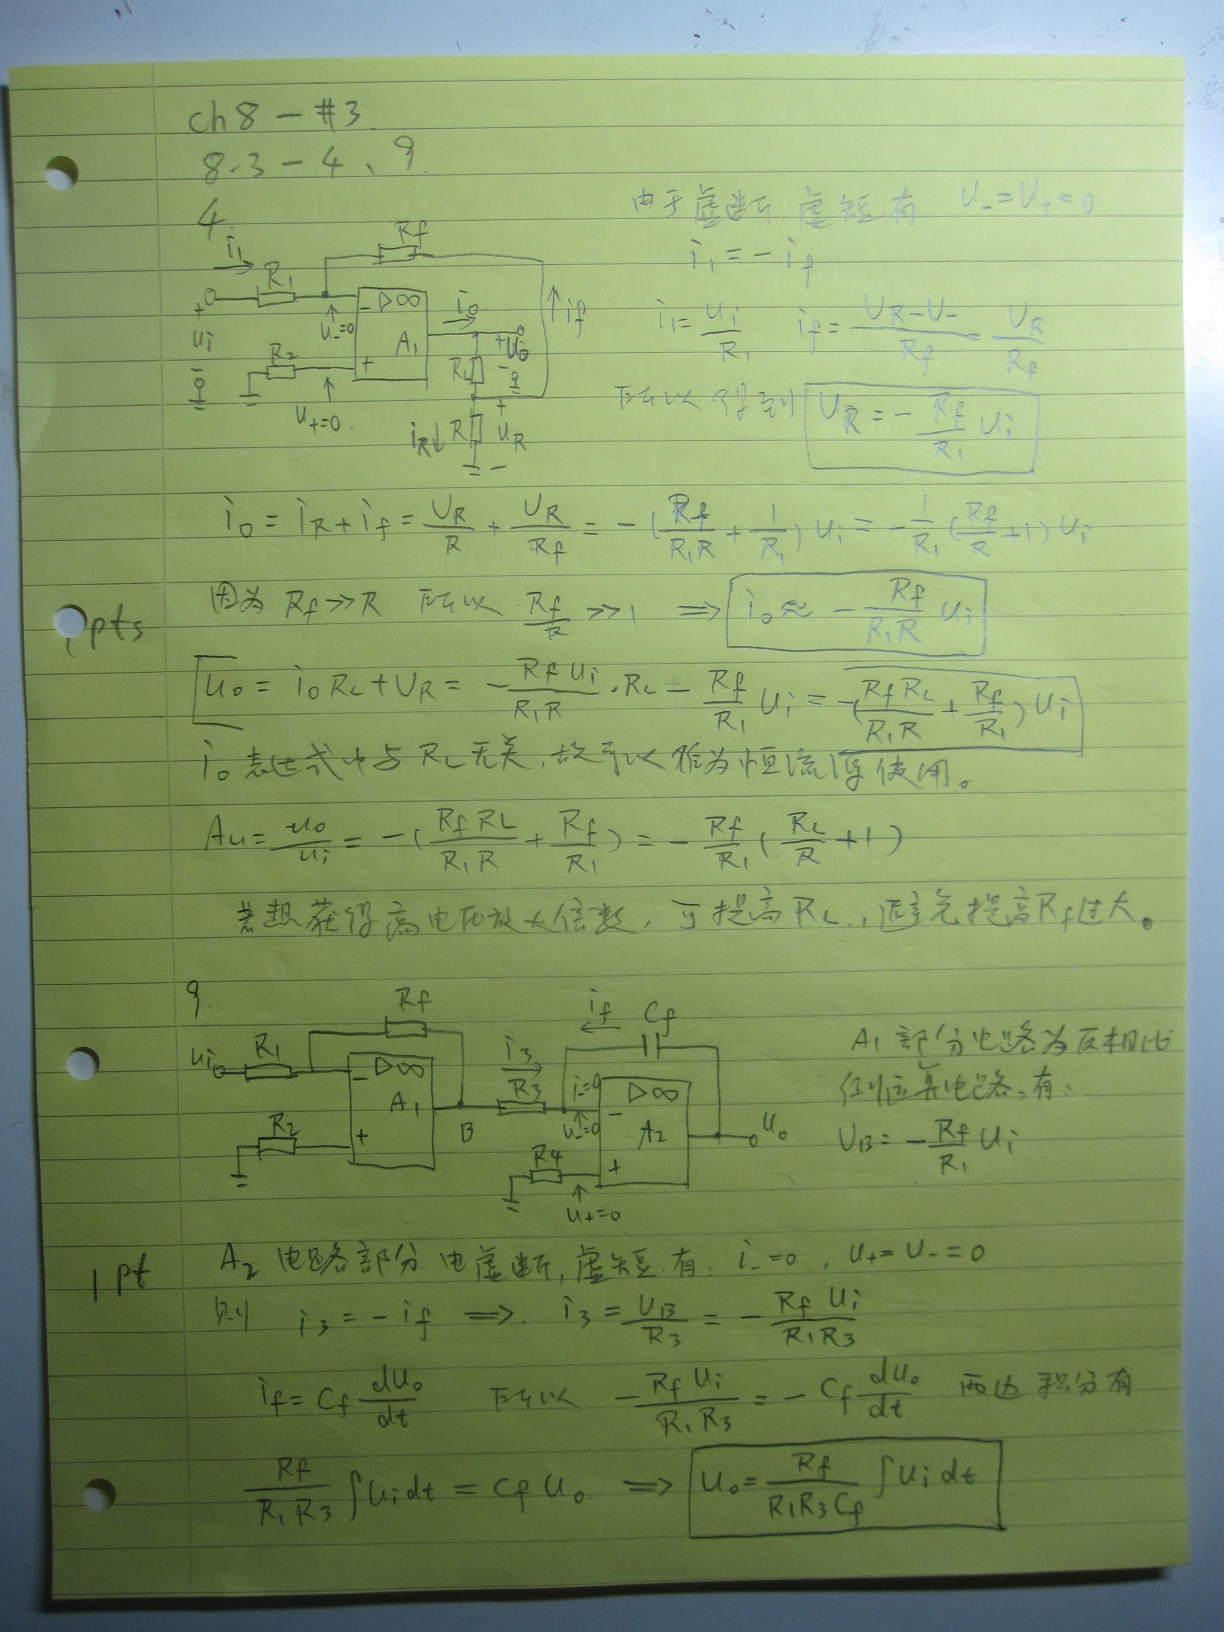 ch8 - #3
8.3 - 4、9
4.
由于虚断、虚短有 U₋=U₊=0
i₁ = -i_f
i₁ = U_i/R₁ i_f = (U_R-U₋)/R_f = U_R/R_f
所以得到 U_R = -(R_f/R₁) U_i
i₁ R₁ R_f
+ u_i -
U₋=0 ▷∞ A₁ - +
R₂ U₊=0
i_o +U_o - R_L i_f
i_R↓ R + U_R -
i_o = i_R + i_f = U_R/R + U_R/R_f = -(R_f/(R₁R) + 1/R₁) U_i = -(1/R₁)(R_f/R + 1) U_i
因为 R_f >> R 所以 R_f/R >> 1 ⟹ i_o ≈ -(R_f/(R₁R)) U_i
2pts
U_o = i_o R_L + U_R = -(R_f U_i/(R₁R))·R_L - (R_f/R₁) U_i = -(R_f R_L/(R₁R) + R_f/R₁) U_i
i_o 表达式中与 R_L 无关, 故可以作为恒流源使用。
Au = u_o/u_i = -(R_f R_L/(R₁R) + R_f/R₁) = -(R_f/R₁)(R_L/R + 1)
若想获得高电压放大倍数, 可提高 R_L, 避免提高R_f过大。
9.
u_i R₁ R_f ▷∞ A₁ - + R₂ B
i₃ R₃ i_f C_f i=0 U₋=0 ▷∞ A₂ - + U_o
R₄ U₊=0
A₁ 部分电路为反相比
例运算电路, 有:
U_B = -(R_f/R₁) U_i
1 pt
A₂ 电路部分 由虚断, 虚短 有: i₋=0, U₊=U₋=0
则 i₃ = -i_f ⟹ i₃ = U_B/R₃ = -(R_f U_i)/(R₁R₃)
i_f = C_f du_o/dt 所以 -(R_f U_i)/(R₁R₃) = -C_f du_o/dt 两边积分有
R_f/(R₁R₃) ∫U_i dt = C_f U_o ⟹ U_o = R_f/(R₁R₃C_f) ∫U_i dt